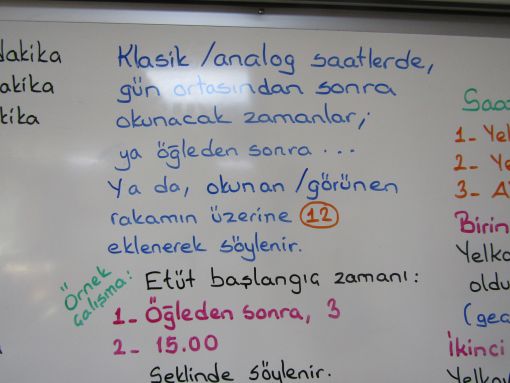 dakika
dakika
Klasik / analog saatlerde,
gün ortasından sonra
okunacak zamanlar;
ya öğleden sonra ...
Ya da, okunan / görünen
rakamın üzerine 12
eklenerek söylenir.
Örnek
çalışma:
Etüt başlangıç zamanı:
1- Öğleden sonra, 3
2- 15.00
Şeklinde söylenir.
Saat
1- Yel
2- Ye
3- A
Birin
Yelko
oldu
(geç
İkinci
Yelkov